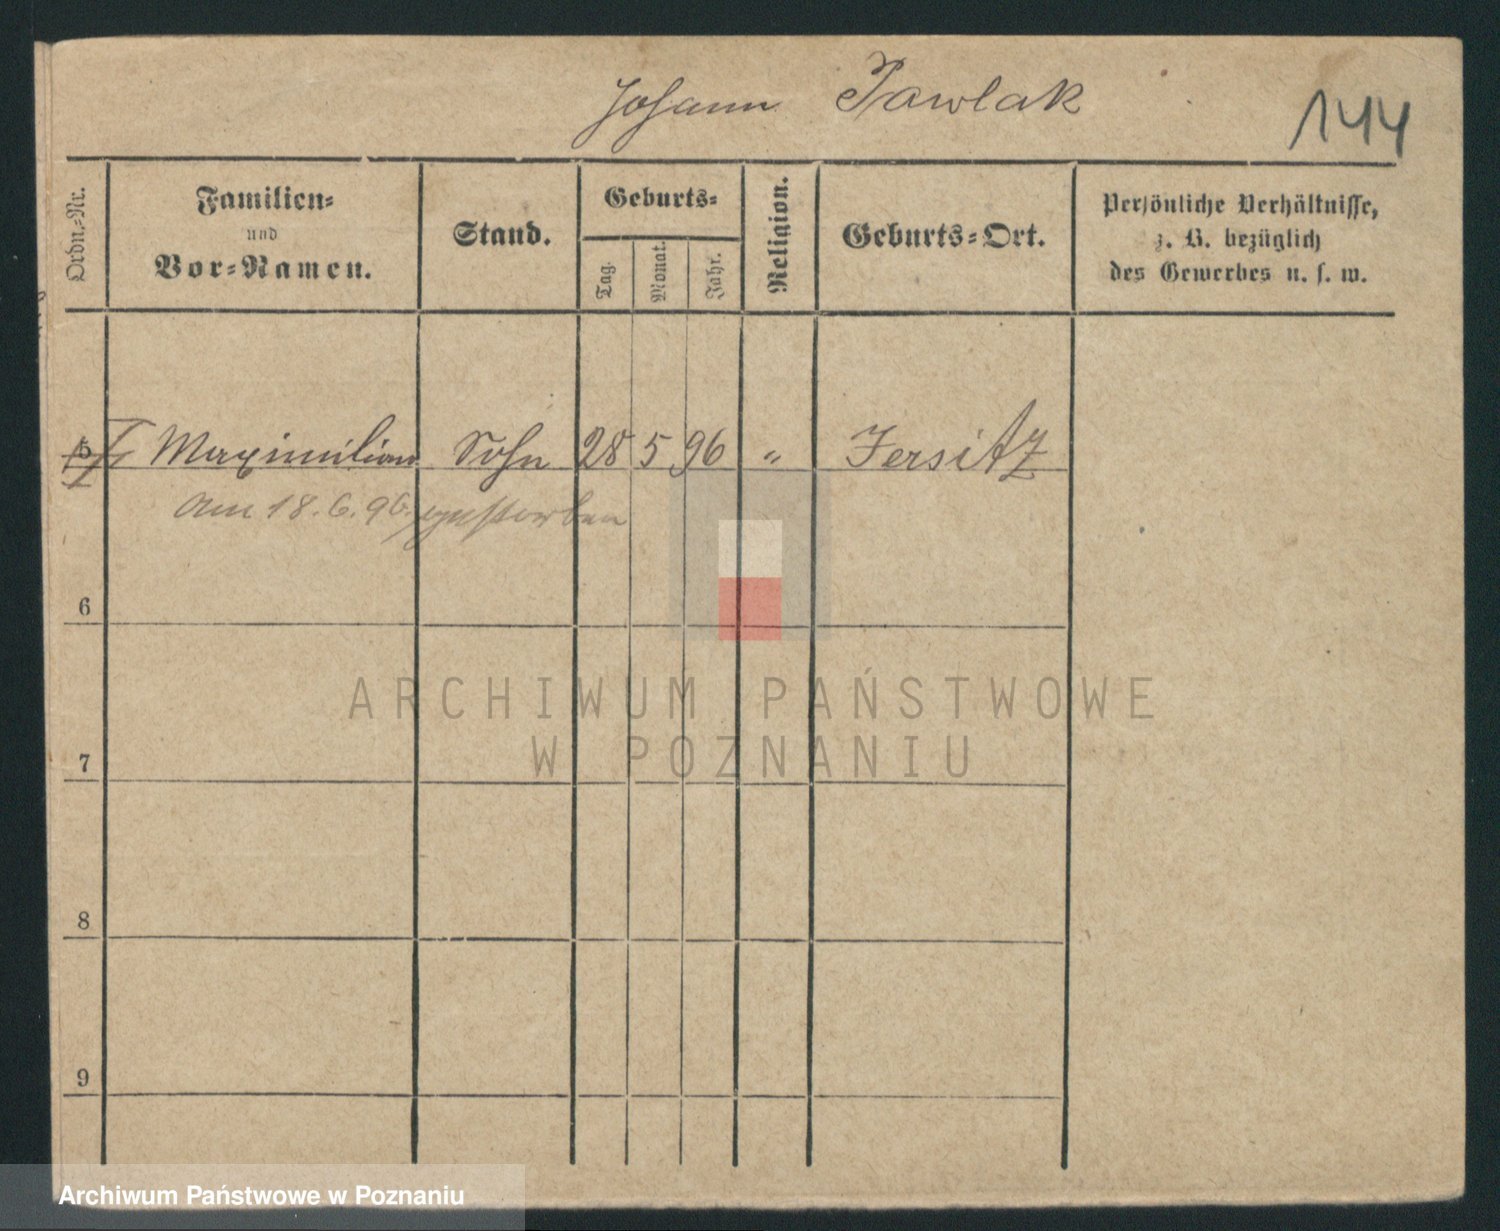 Johann Pawlak
144
Ordn.-Nr.
Familien-
und
Vor-Namen.
Stand.
Geburts-
Tag.
Monat.
Jahr.
Religion.
Geburts-Ort.
Persönliche Verhältnisse,
z. B. bezüglich
des Gewerbes u. s. w.
5 Maximilian Sohn 28 5 96 " Jersitz
am 18.6.96. gestorben
6
ARCHIWUM PAŃSTWOWE
W POZNANIU
7
8
9
Archiwum Państwowe w Poznaniu